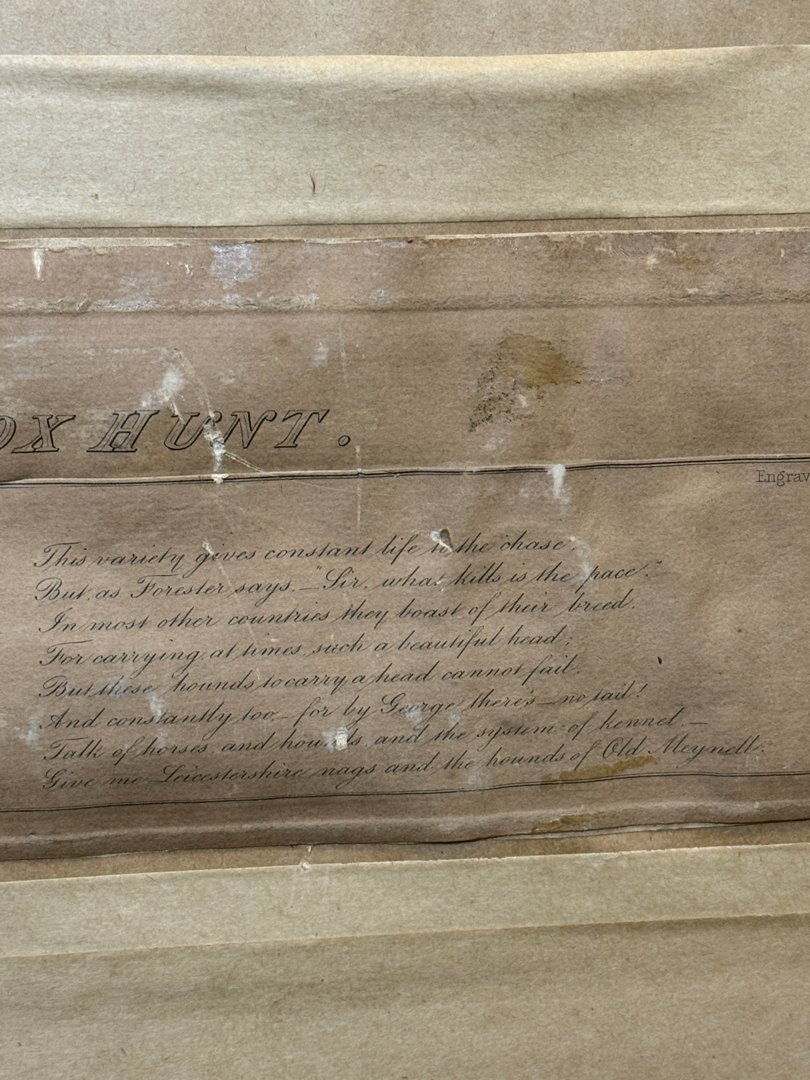 OX HUNT.
Engrav
This variety gives constant life to the chase.
But, as Forester says.—"Sir, what kills is the pace."—
In most other countries they boast of their breed.
For carrying, at times, such a beautiful head;
But these hounds to carry a head cannot fail.
And constantly too,— for by George there's—no tail!
Talk of horses, and hounds, and the system of kennel.—
Give me Leicestershire nags and the hounds of Old Meynell.